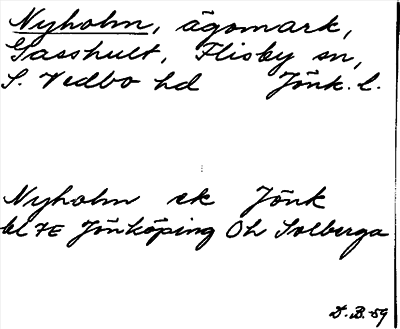 Nyholm, ägomark,
Gasshult, Flisby sn,
S. Vedbo hd Jönk. l.
Nyholm ek Jönk
bl 7E Jönköping Öh Solberga
D.B.-59